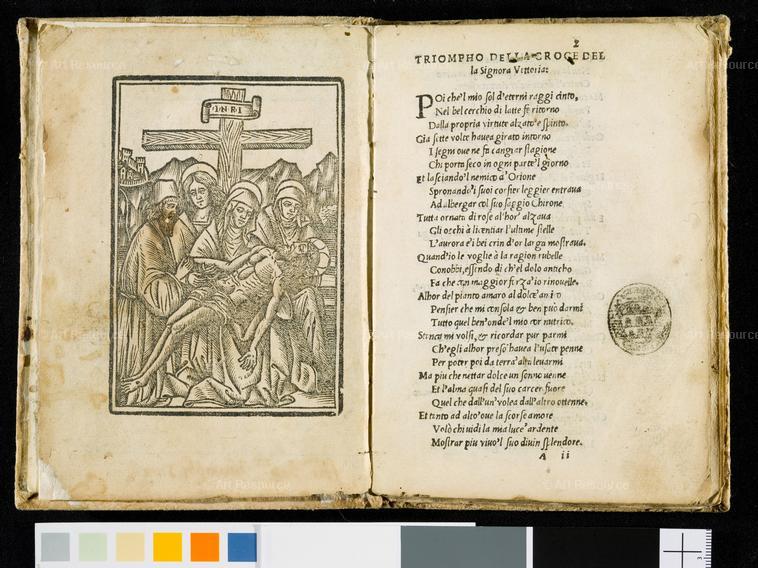 I·N·R·I
2
TRIOMPHO DELLA CROCE DEL
la Signora Vittoria:
POi che'l mio sol d'eterni raggi cinto,
Nel bel cerchio di latte fe ritorno
Dalla propria virtute alzato e spinto.
Gia sette volte hauea girato intorno
I segni oue ne fa cangiar stagione
Chi porta seco in ogni parte'l giorno
Et lasciando'l nemico a'Orione
Spronando'i suoi corsier leggier entraua
Ad albergar col suo saggio Chirone.
Tutta ornata di rose al'hor' alzaua
Gli occhi à licentiar l'ultime stelle
L'aurora e'i bei crin d'or larga mostraua.
Quand'io le voglie à la ragion rubelle
Conobbi, essendo di ch'el dolo anticho
Fa che con maggior forza'io rinouelle.
Alhor del pianto amaro al dolce
Pensier che mi consola & ben può darmi
Tutto quel ben'onde'l mio cor nutrico.
Stanca mi volsi, & ricordar pur parmi
Ch'egli alhor preso' hauea l'usate penne
Per poter poi da terra'alta leuarmi
Ma piu che nettar dolce un sonno uenne
Et l'alma quasi del suo carcer fuore
Quel che dall'un'volea dall'altro ottenne.
Et tanto ad alto'oue la scorse amore
Volò chiuidi la mia luce'ardente
Mostrar piu viuo'l suo diuin splendore.
A ii
© Art Resource